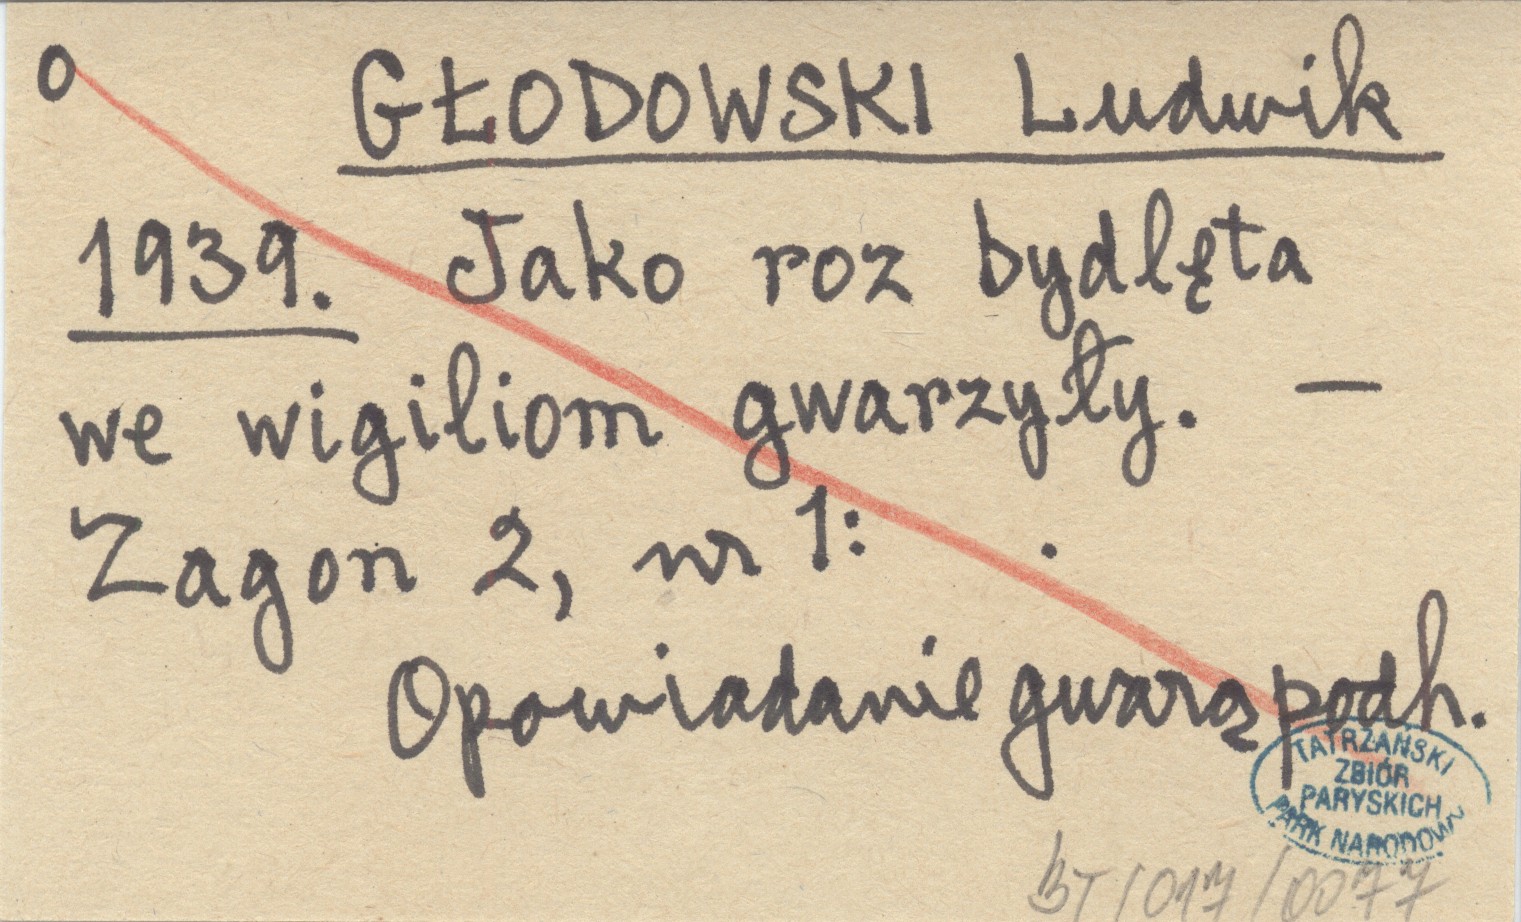 o GŁODOWSKI Ludwik
1939. Jako roz bydlęta
we wigiliom gwarzyły. —
Zagon 2, nr 1: .
Opowiadanie gwarą podh.
TATRZAŃSKI
ZBIÓR
PARYSKICH
PARK NARODOWY
BT/017/0077